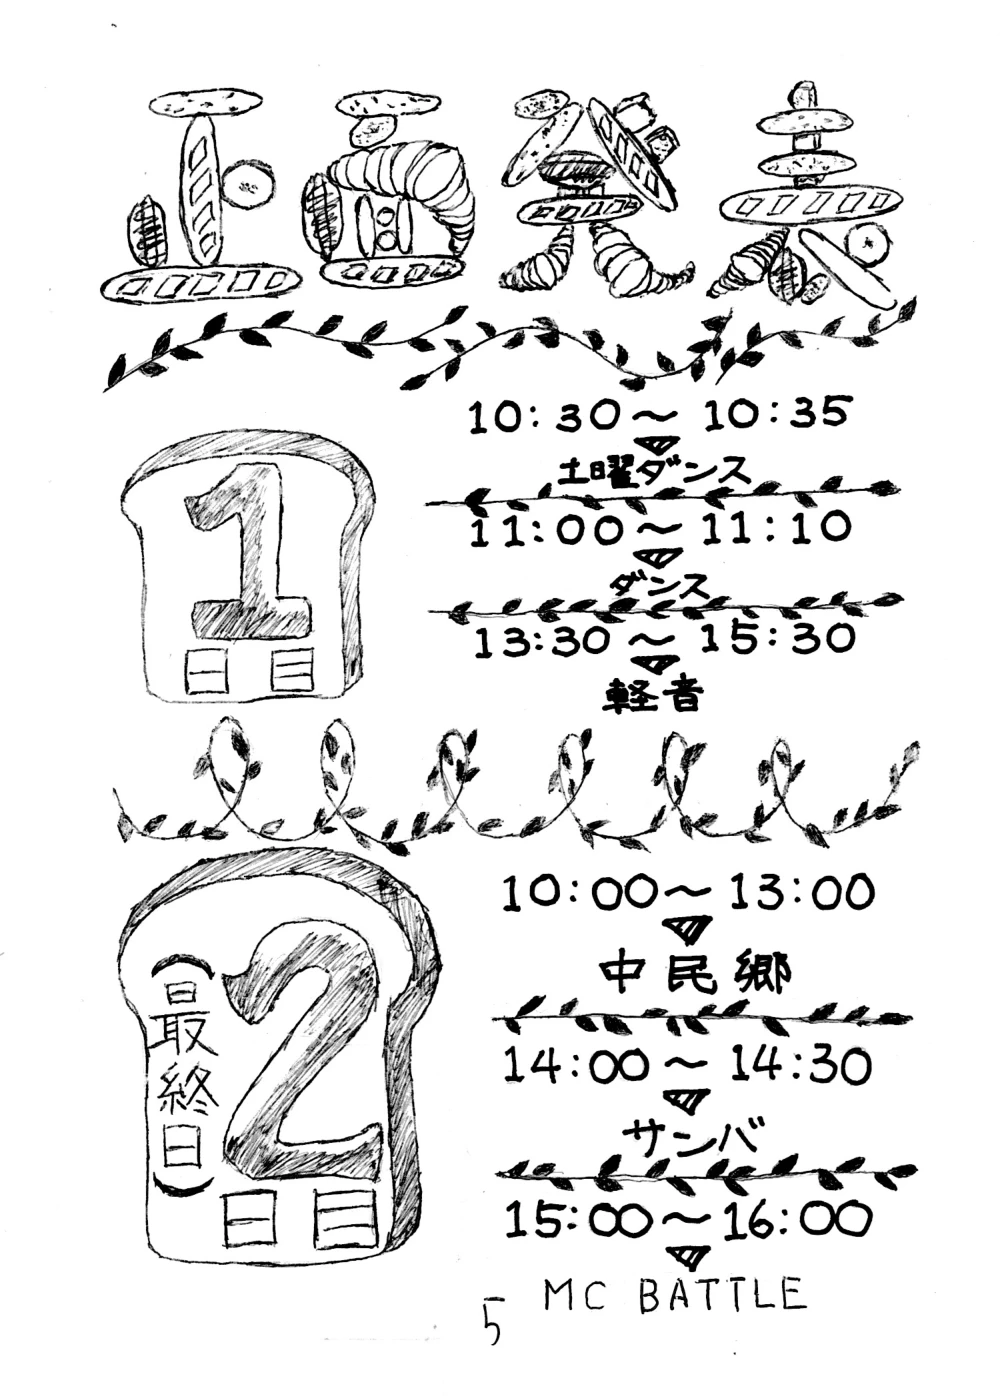 正面発表
10:30～10:35
土曜ダンス
11:00～11:10
ダンス
13:30～15:30
軽音
1
日目
10:00～13:00
中民郷
14:00～14:30
サンバ
15:00～16:00
MC BATTLE
2
日目
(最終日)
5